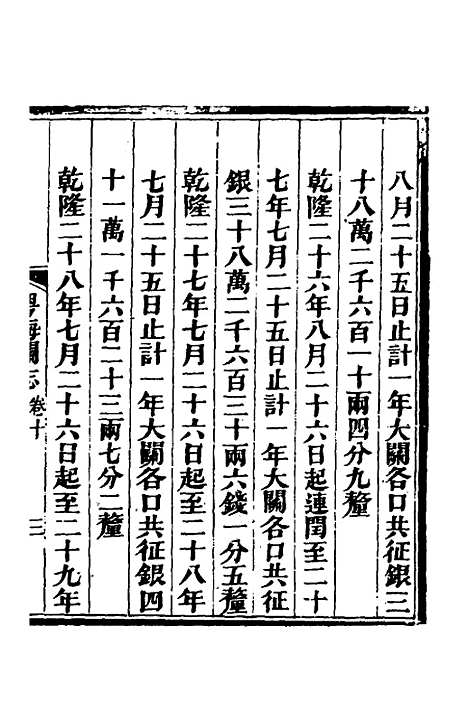 八月二十五日止計一年大關各口共征銀三
十八萬二千六百一十兩四分九釐
乾隆二十六年八月二十六日起連閏至二十
七年七月二十五日止計一年大關各口共征
銀三十八萬二千六百三十兩六錢一分五釐
乾隆二十七年七月二十六日起至二十八年
七月二十五日止計一年大關各口共征銀四
十一萬一千六百二十三兩七分二釐
乾隆二十八年七月二十六日起至二十九年
粵海關志 卷十 三